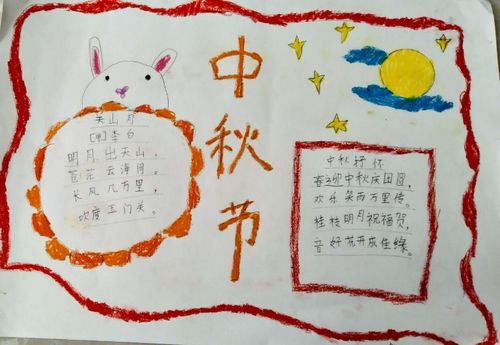 中秋节
关山月
[唐]李白
明月出天山，
苍茫云海间。
长风几万里，
吹度玉门关。
中秋抒怀
喜迎中秋庆团圆，
欢乐笑语万里传。
桂枝明月祝福贺，
音好花开成佳缘。